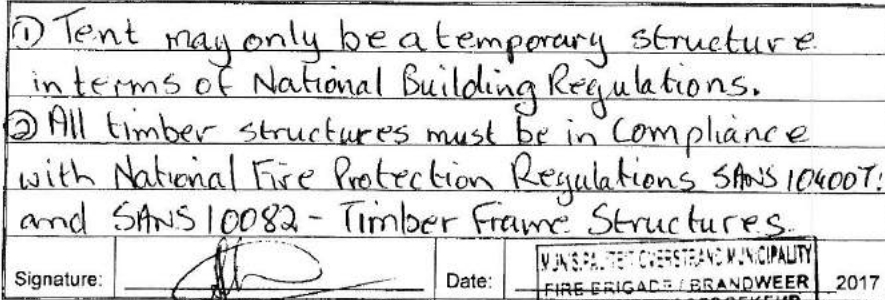 ① Tent may only be a temporary structure
in terms of National Building Regulations.
② All timber structures must be in Compliance
with National Fire Protection Regulations SANS 10400T:
and SANS 10082 - Timber Frame Structures.
Signature: Date: MUNISIPALITEIT OVERSTRAND MUNICIPALITY
FIRE BRIGADE / BRANDWEER 2017